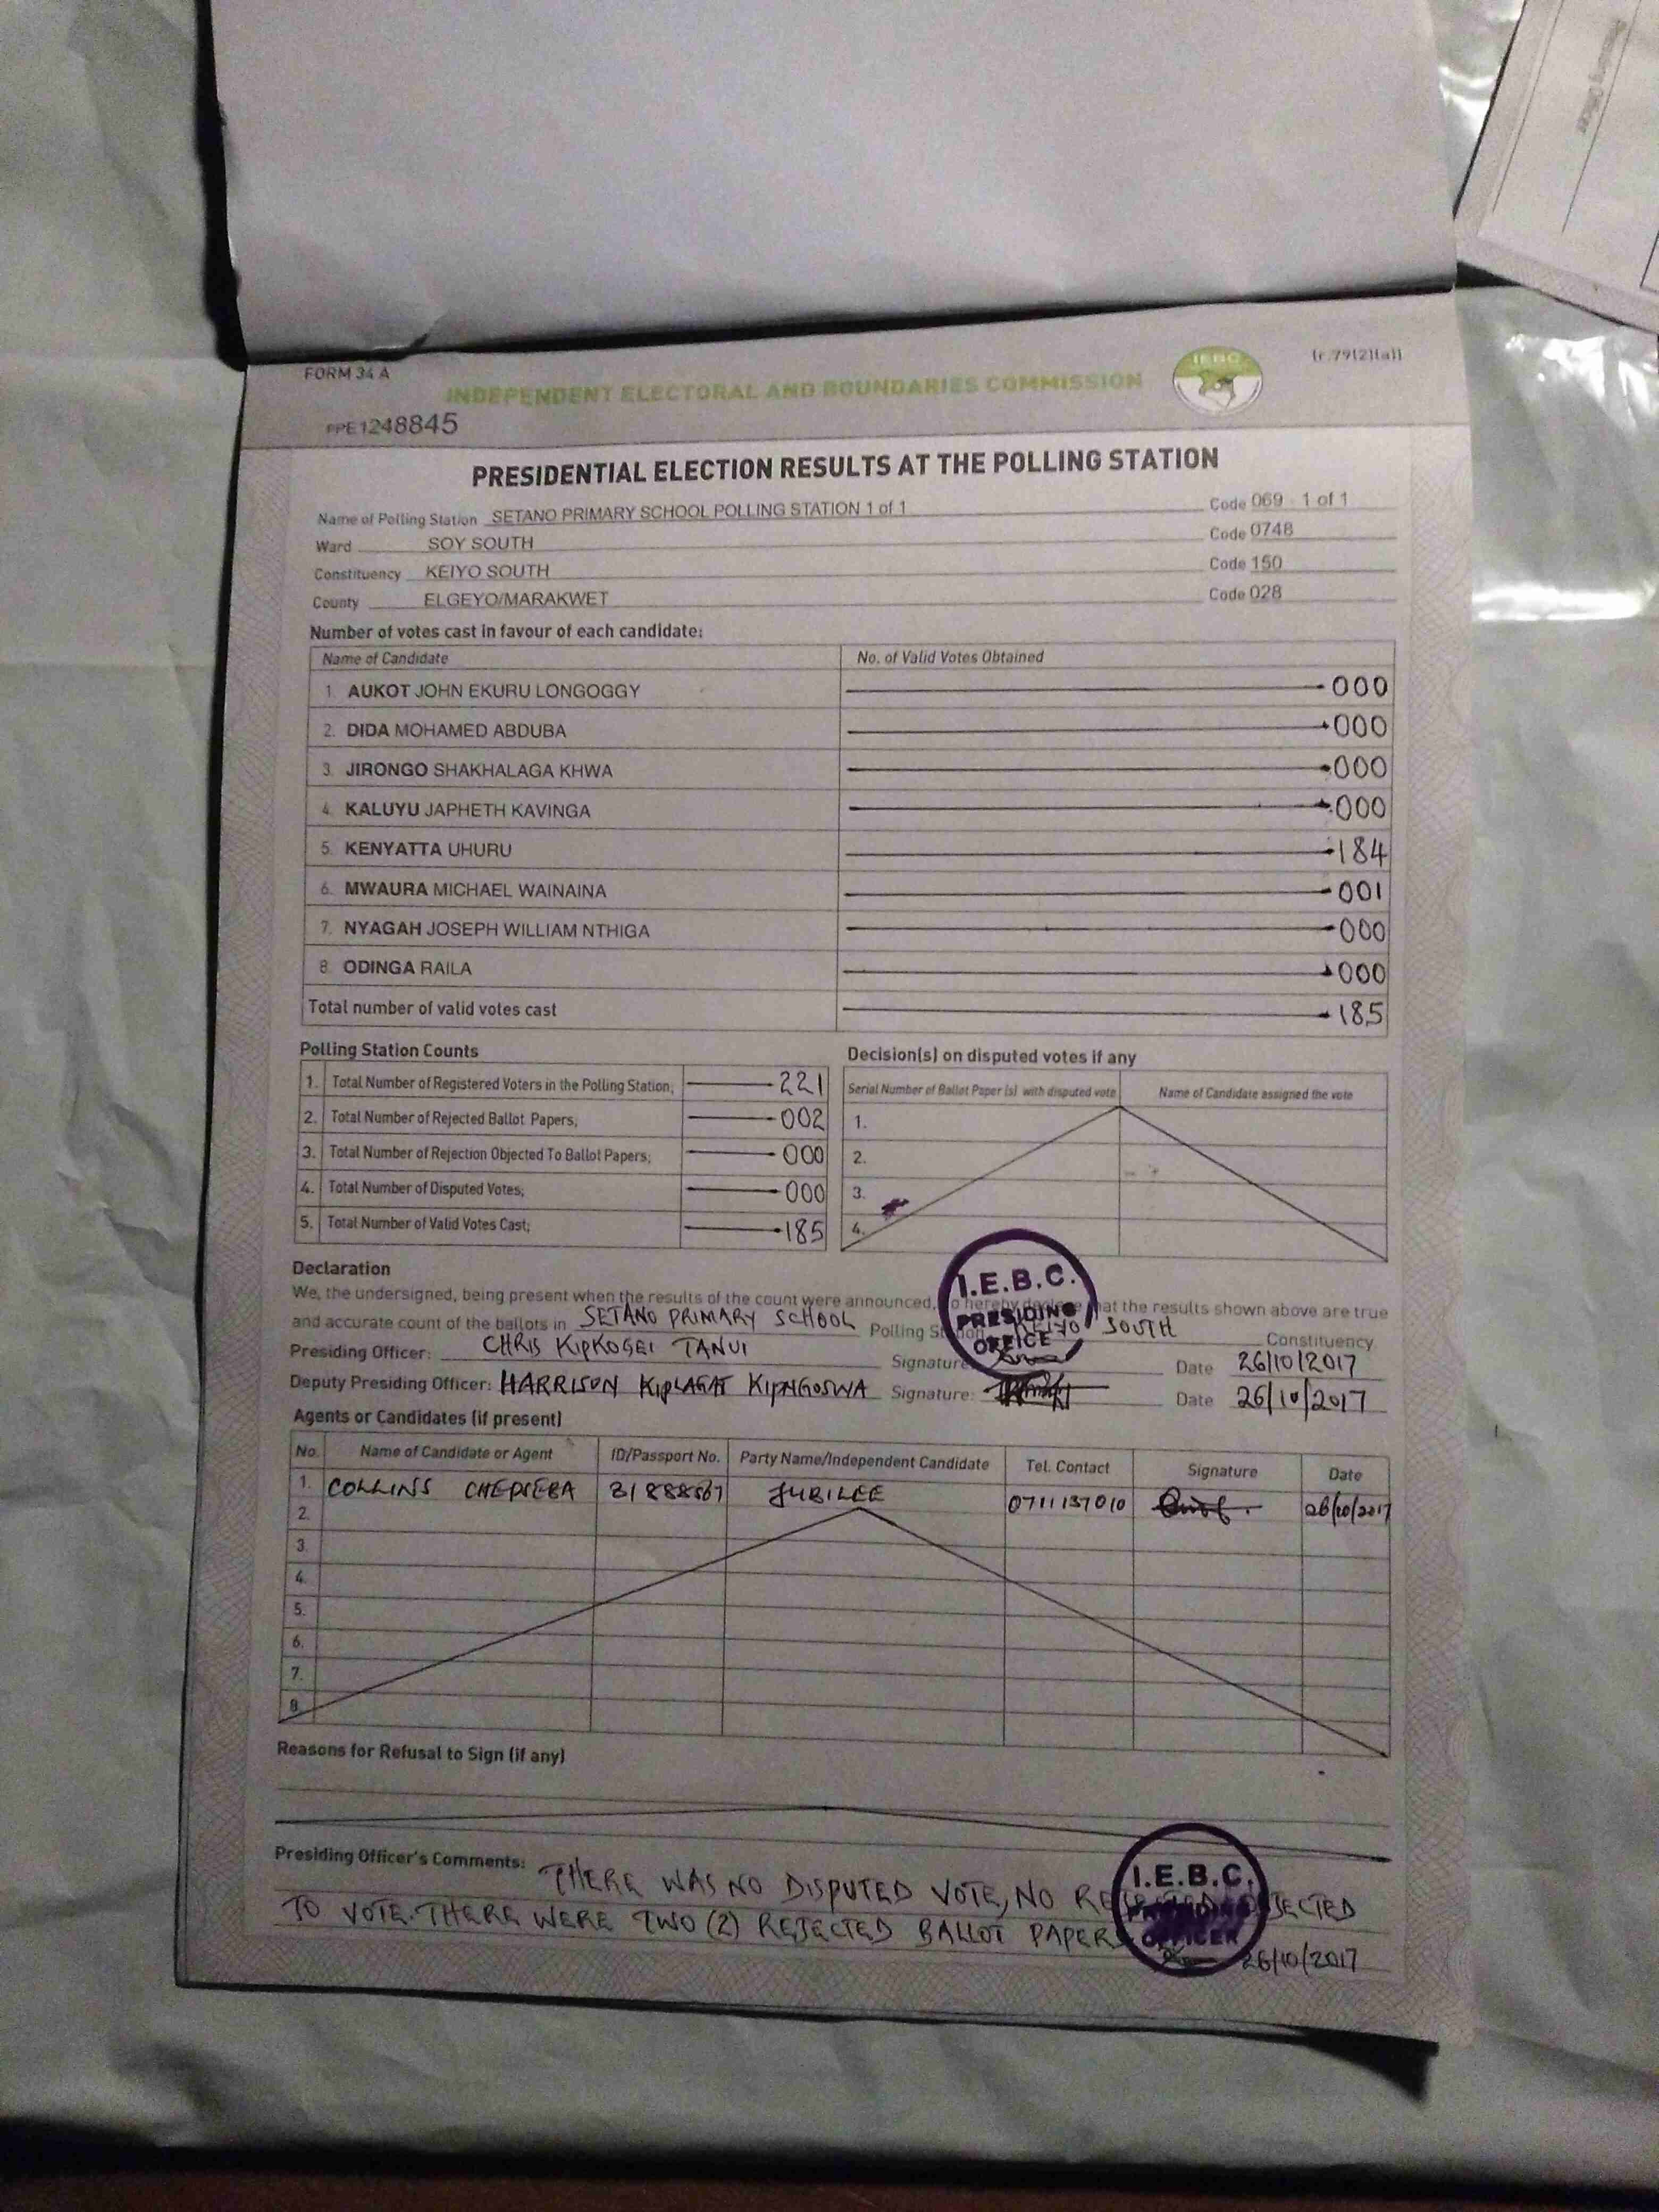 Presiding Officer
FORM 34 A
(r.79(2)(a))
INDEPENDENT ELECTORAL AND BOUNDARIES COMMISSION
IEBC
PPE1248845
PRESIDENTIAL ELECTION RESULTS AT THE POLLING STATION
Name of Polling Station SETANO PRIMARY SCHOOL POLLING STATION 1 of 1 Code 069 - 1 of 1
Ward SOY SOUTH Code 0748
Constituency KEIYO SOUTH Code 150
County ELGEYO/MARAKWET Code 028
Number of votes cast in favour of each candidate:
Name of Candidate No. of Valid Votes Obtained
1. AUKOT JOHN EKURU LONGOGGY 000
2. DIDA MOHAMED ABDUBA 000
3. JIRONGO SHAKHALAGA KHWA 000
4. KALUYU JAPHETH KAVINGA 000
5. KENYATTA UHURU 184
6. MWAURA MICHAEL WAINAINA 001
7. NYAGAH JOSEPH WILLIAM NTHIGA 000
8. ODINGA RAILA 000
Total number of valid votes cast 185
Polling Station Counts
1. Total Number of Registered Voters in the Polling Station; 221
2. Total Number of Rejected Ballot Papers; 002
3. Total Number of Rejection Objected To Ballot Papers; 000
4. Total Number of Disputed Votes; 000
5. Total Number of Valid Votes Cast; 185
Decision(s) on disputed votes if any
Serial Number of Ballot Paper (s) with disputed vote Name of Candidate assigned the vote
1.
2.
3.
4.
Declaration
We, the undersigned, being present when the results of the count were announced, do hereby declare that the results shown above are true
and accurate count of the ballots in SETANO PRIMARY SCHOOL Polling Station KEIYO SOUTH Constituency
I.E.B.C. PRESIDING OFFICE
Presiding Officer: CHRIS KIPKOGEI TANUI Signature Date 26/10/2017
Deputy Presiding Officer: HARRISON KIPLAGAT KIPNGOSWA Signature: Date 26/10/2017
Agents or Candidates (if present)
No. Name of Candidate or Agent ID/Passport No. Party Name/Independent Candidate Tel. Contact Signature Date
1. COLLINS JUBILEE 0711137010 26/10/2017
2.
3.
4.
5.
6.
7.
8.
Reasons for Refusal to Sign (if any)
Presiding Officer's Comments: THERE WAS NO DISPUTED VOTE, NO OBJECTED
TO VOTE. THERE WERE TWO (2) REJECTED BALLOT PAPERS
I.E.B.C. PRESIDING OFFICER
26/10/2017